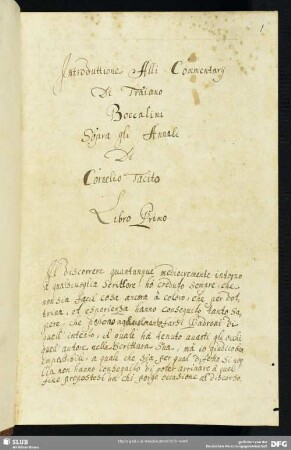 1
Introduttione Alli Commentarij
Di Traiano
Boccalini
Sopra gli Annali
Di
Cornelio Tacito
Libro Primo
Il discorrere quantunque mediocremente intorno
à qualsivoglia Scrittore hò creduto sempre, che
non sia facil cosa ancora à coloro, che per dot,
trina, et esperienza hanno conseguito tanto sa,
pere, che possono farsi Padroni di
quell' intento, il quale hà tenuto avanti gli occhi
quell' autore nella Scrittura Sua, mà io giudico ben
à quale che sia, per qual difetto si vog,
lia non hanno conseguito di poter arrivare à quel
fine propostosi da chi porge occasione al discorso.
SLUB
DFG